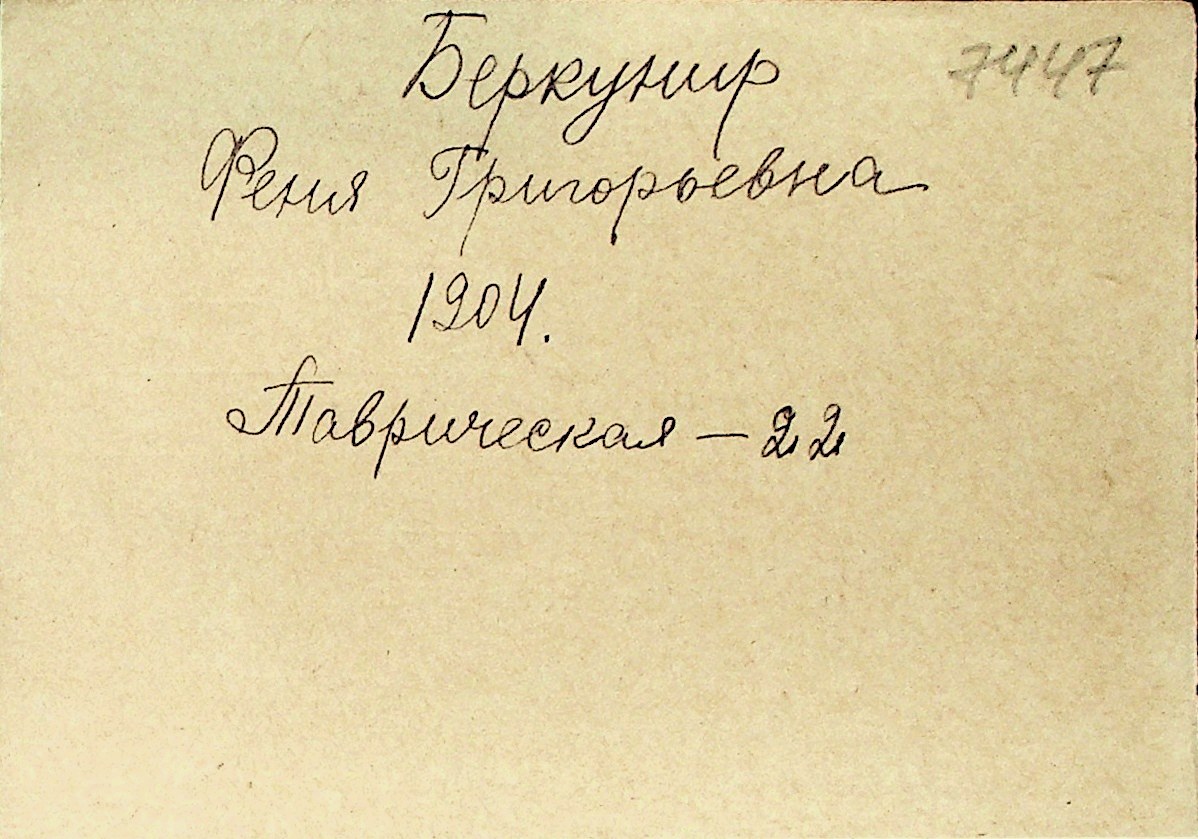 Беркунир 7447
Феня Григорьевна
1904.
Таврическая — 22